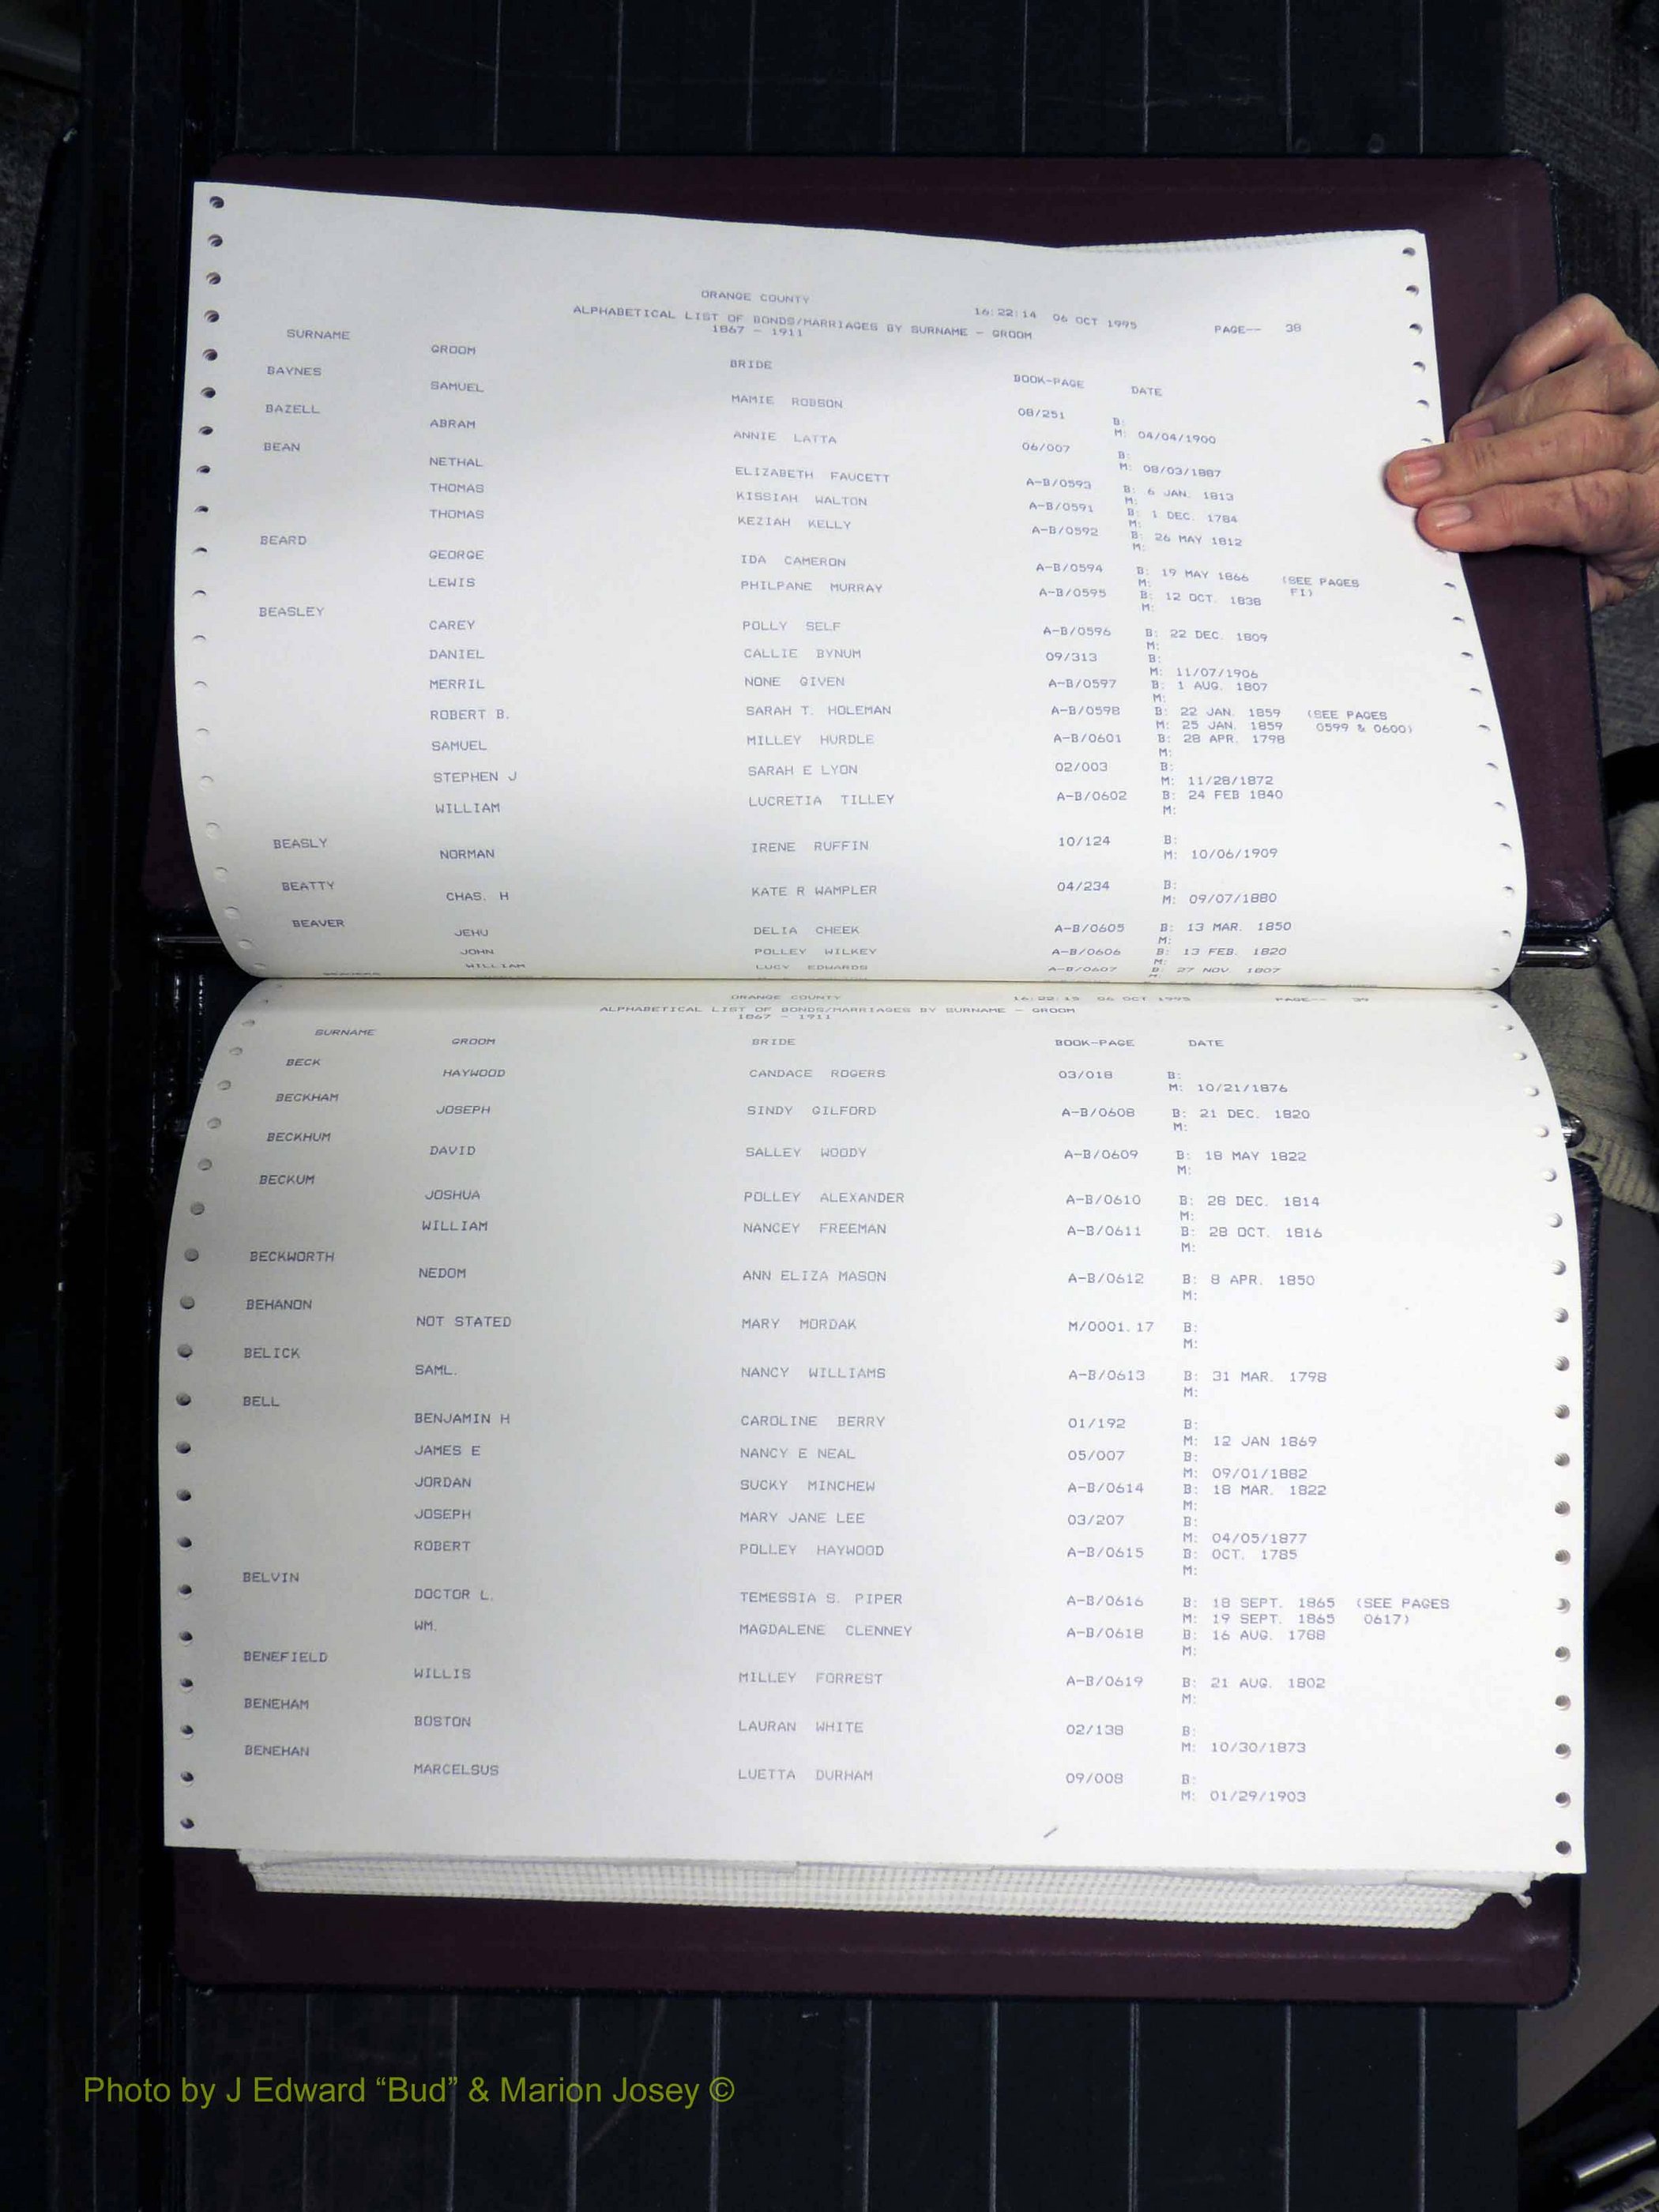 ORANGE COUNTY 16:22:14 06 OCT 1995 PAGE-- 38
ALPHABETICAL LIST OF BONDS/MARRIAGES BY SURNAME - GROOM
1867 - 1911
SURNAME GROOM BRIDE BOOK-PAGE DATE
BAYNES
SAMUEL MAMIE ROBSON 08/251 B:
M: 04/04/1900
BAZELL
ABRAM ANNIE LATTA 06/007 B:
M: 08/03/1887
BEAN
NETHAL ELIZABETH FAUCETT A-B/0593 B: 6 JAN. 1813
M:
THOMAS KISSIAH WALTON A-B/0591 B: 1 DEC. 1784
M:
THOMAS KEZIAH KELLY A-B/0592 B: 26 MAY 1812
M:
BEARD
GEORGE IDA CAMERON A-B/0594 B: 19 MAY 1866 (SEE PAGES
M: FI)
LEWIS PHILPANE MURRAY A-B/0595 B: 12 OCT. 1838
M:
BEASLEY
CAREY POLLY SELF A-B/0596 B: 22 DEC. 1809
M:
DANIEL CALLIE BYNUM 09/313 B:
M: 11/07/1906
MERRIL NONE GIVEN A-B/0597 B: 1 AUG. 1807
M:
ROBERT B. SARAH T. HOLEMAN A-B/0598 B: 22 JAN. 1859 (SEE PAGES
M: 25 JAN. 1859 0599 & 0600)
SAMUEL MILLEY HURDLE A-B/0601 B: 28 APR. 1798
M:
STEPHEN J SARAH E LYON 02/003 B:
M: 11/28/1872
WILLIAM LUCRETIA TILLEY A-B/0602 B: 24 FEB 1840
M:
BEASLY
NORMAN IRENE RUFFIN 10/124 B:
M: 10/06/1909
BEATTY
CHAS. H KATE R WAMPLER 04/234 B:
M: 09/07/1880
BEAVER
JEHU DELIA CHEEK A-B/0605 B: 13 MAR. 1850
M:
JOHN POLLEY WILKEY A-B/0606 B: 13 FEB. 1820
M:
WILLIAM LUCY EDWARDS A-B/0607 B: 27 NOV. 1807
M:
ORANGE COUNTY 16:22:15 06 OCT 1995 PAGE-- 39
ALPHABETICAL LIST OF BONDS/MARRIAGES BY SURNAME - GROOM
1867 - 1911
SURNAME GROOM BRIDE BOOK-PAGE DATE
BECK
HAYWOOD CANDACE ROGERS 03/018 B:
M: 10/21/1876
BECKHAM
JOSEPH SINDY GILFORD A-B/0608 B: 21 DEC. 1820
M:
BECKHUM
DAVID SALLEY WOODY A-B/0609 B: 18 MAY 1822
M:
BECKUM
JOSHUA POLLEY ALEXANDER A-B/0610 B: 28 DEC. 1814
M:
WILLIAM NANCEY FREEMAN A-B/0611 B: 28 OCT. 1816
M:
BECKWORTH
NEDOM ANN ELIZA MASON A-B/0612 B: 8 APR. 1850
M:
BEHANON
NOT STATED MARY MORDAK M/0001.17 B:
M:
BELICK
SAML. NANCY WILLIAMS A-B/0613 B: 31 MAR. 1798
M:
BELL
BENJAMIN H CAROLINE BERRY 01/192 B:
M: 12 JAN 1869
JAMES E NANCY E NEAL 05/007 B:
M: 09/01/1882
JORDAN SUCKY MINCHEW A-B/0614 B: 18 MAR. 1822
M:
JOSEPH MARY JANE LEE 03/207 B:
M: 04/05/1877
ROBERT POLLEY HAYWOOD A-B/0615 B: OCT. 1785
M:
BELVIN
DOCTOR L. TEMESSIA S. PIPER A-B/0616 B: 18 SEPT. 1865 (SEE PAGES
M: 19 SEPT. 1865 0617)
WM. MAGDALENE CLENNEY A-B/0618 B: 16 AUG. 1788
M:
BENEFIELD
WILLIS MILLEY FORREST A-B/0619 B: 21 AUG. 1802
M:
BENEHAM
BOSTON LAURAN WHITE 02/138 B:
M: 10/30/1873
BENEHAN
MARCELSUS LUETTA DURHAM 09/008 B:
M: 01/29/1903
Photo by J Edward “Bud” & Marion Josey ©